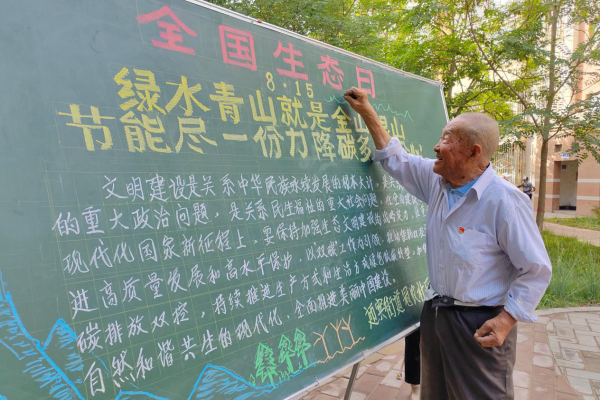 全国生态日
8·15
绿水青山就是金山银山
节能尽一份力 降碳多
文明建设是关系中华民族永续发展的根本大计，是关
的重大政治问题，是关系民生福祉的重大社会问题
现代化国家新征程上，要保持加强生态文明建设的
进高质量发展和高水平保护，以双碳工作为引领，
碳排放双控，持续推进生产方式和生活方式
自然和谐共生的现代化，全面推进美丽中国建设。
迎宾街道